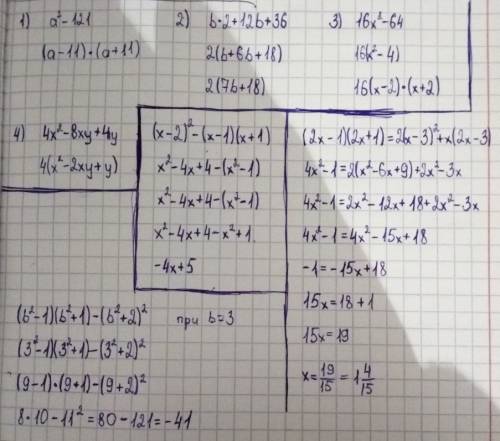 1) a²-121
(a-11)•(a+11)
2) b•2+12b+36
2(b+6b+18)
2(7b+18)
3) 16x²-64
16(x²-4)
16(x-2)•(x+2)
4) 4x²-8xy+4y
4(x²-2xy+y)
(x-2)²-(x-1)(x+1)
x²-4x+4-(x²-1)
x²-4x+4-(x²-1)
x²-4x+4-x²+1
-4x+5
(2x-1)(2x+1)=2(x-3)²+x(2x-3)
4x²-1=2(x²-6x+9)+2x²-3x
4x²-1=2x²-12x+18+2x²-3x
4x²-1=4x²-15x+18
-1=-15x+18
15x=18+1
15x=19
x=19/15=1 4/15
(b²-1)(b²+1)-(b²+2)² при b=3
(3²-1)(3²+1)-(3²+2)²
(9-1)•(9+1)-(9+2)²
8•10-11²=80-121=-41